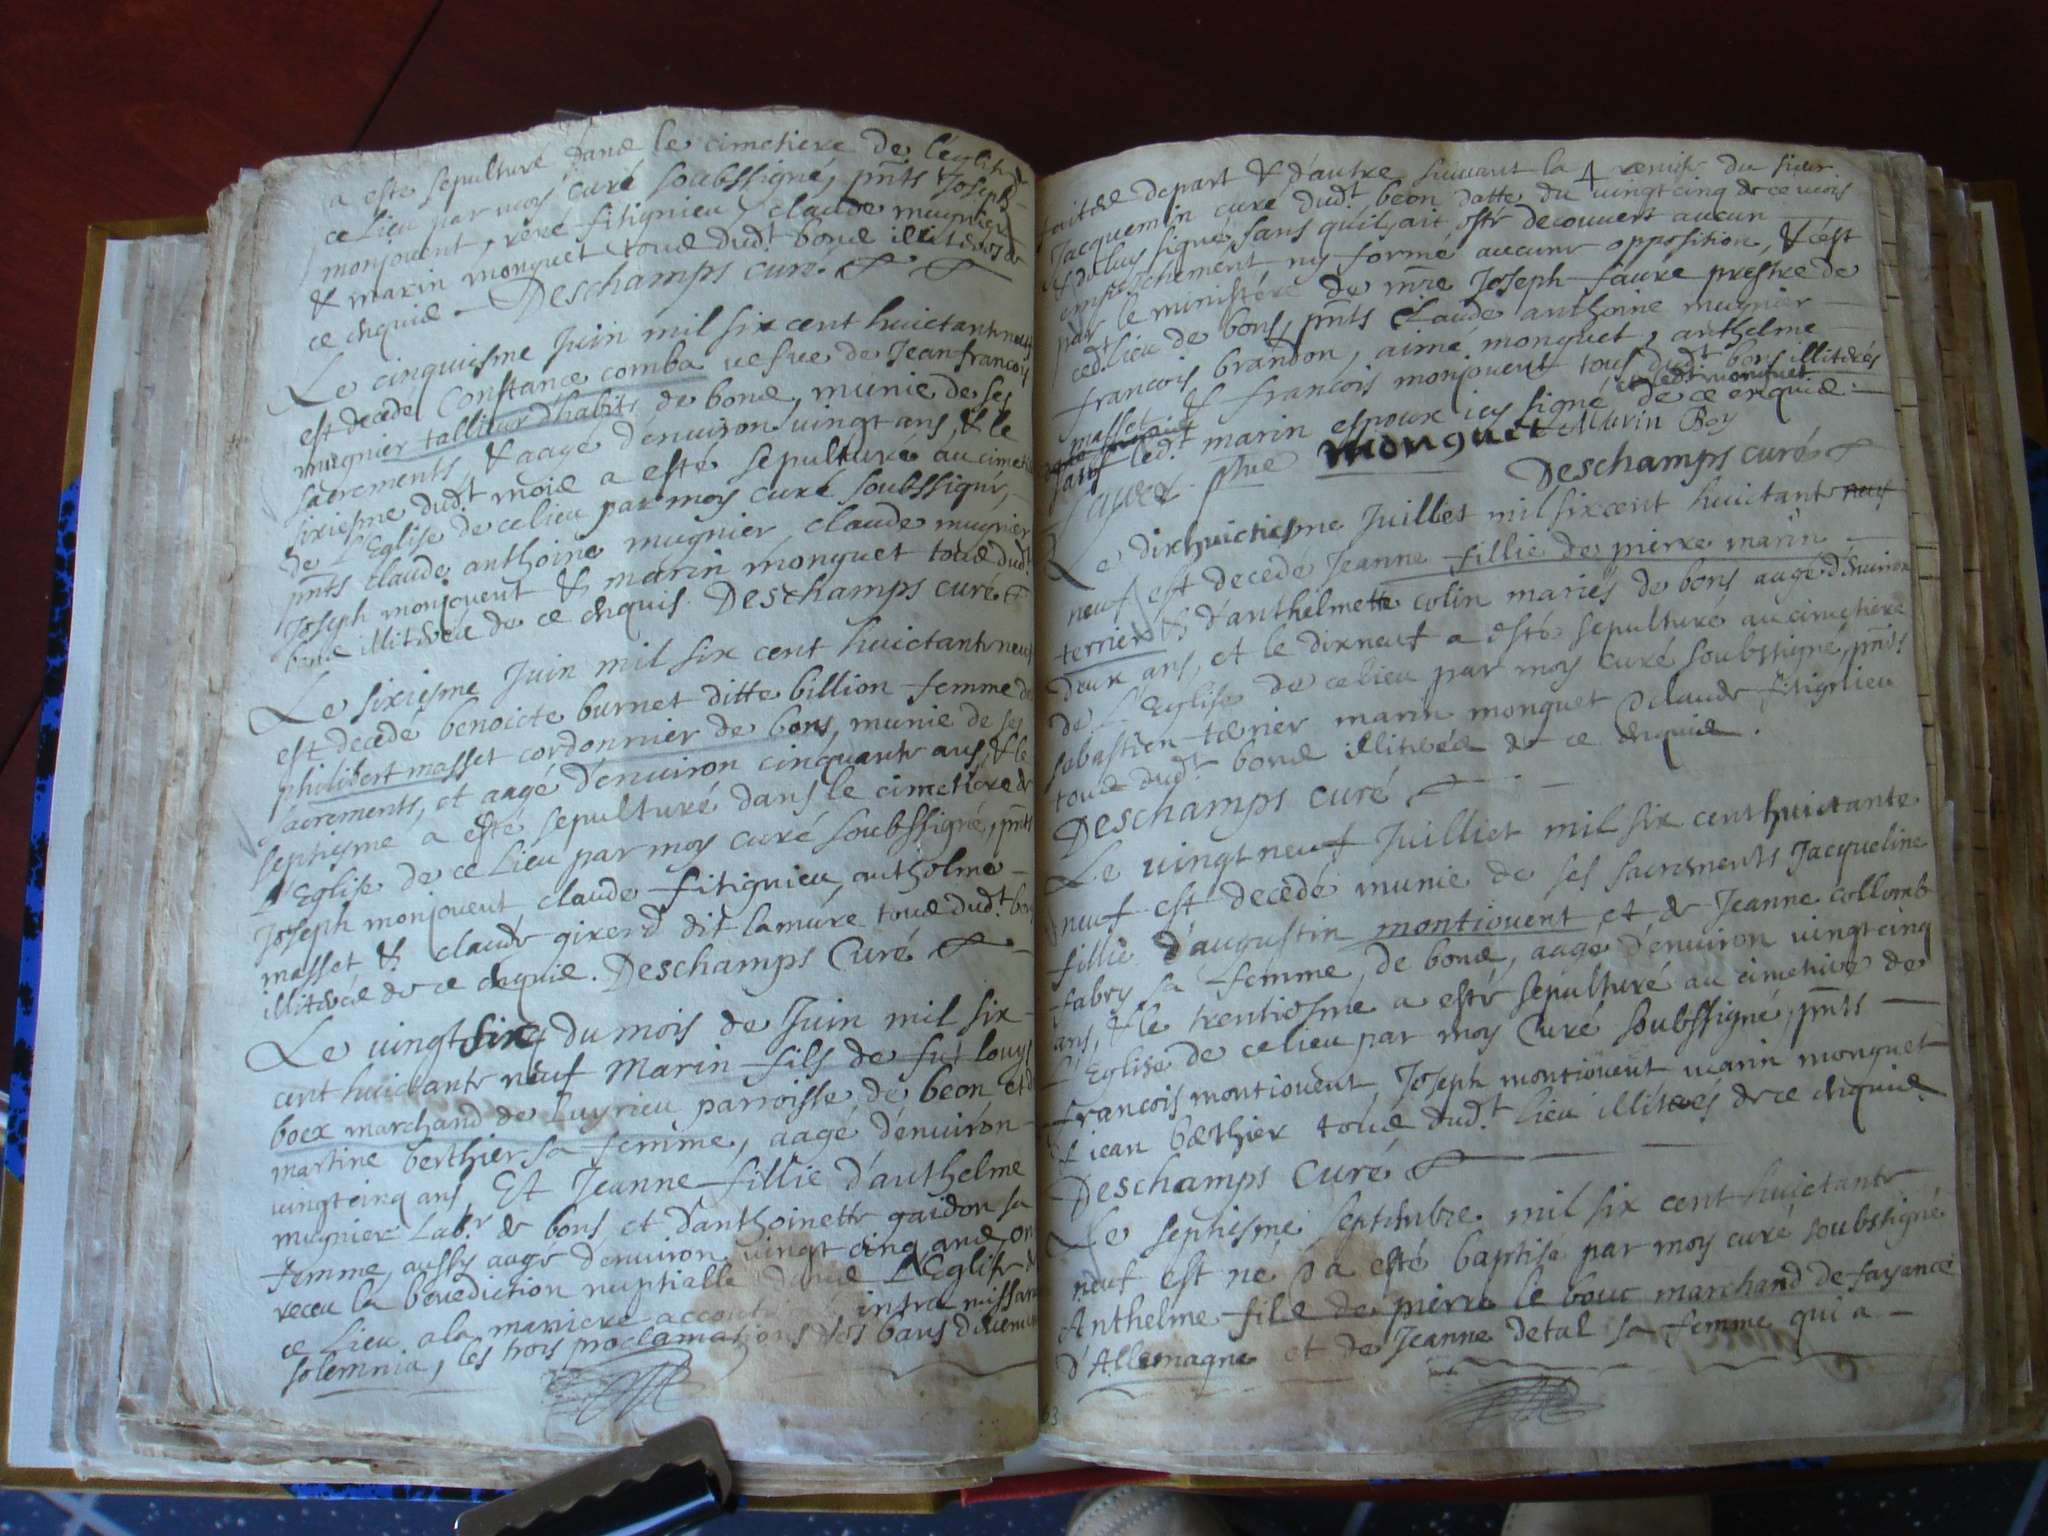 a esté sepulturé dans le cimetiere de l'église de
ce Lieu par moy curé soubssigné, pnts Joseph
monjouent, rené fitignieu, claude mugnier
& marin monguet tous dudt bons illiterés de
ce enquis. Deschamps curé
Le cinquiesme Juin mil six cent huictante neuf
est decedé Constance comba vefve de Jean francois
mugnier tallieur d'habits de bons, munie de ses
sacrements, & aagé d'environ vingt ans, & le
sixiesme dudt mois a esté sepulturé au cimetiere
de L'Eglise de ce lieu par moy curé soubssigné,
pnts claude anthoine mugnier, claude mugnier
Joseph monjouent & marin monguet tous dudt
bons illiterés de ce enquis. Deschamps curé
Le sixiesme Juin mil six cent huictante neuf
est decedé benoicte burnet ditte billion femme de
philibert masset cordonnier de bons, munie de ses
sacrements, et aagé d'environ cinquante ans & le
septiesme a esté sepulturé dans le cimetiere de
L'Eglise de ce Lieu par moy curé soubssigné, pnts
Joseph monjouent claude fitignieu, anthelme
masset & claude girerd dit lamure tous dudt bons
illiterés de ce enquis. Deschamps Curé
Le vingt six du mois de Juin mil six
cent huictante neuf Marin fils de fut louys
boex marchand de Luyrieu parroisse de beon et de
martine berthier sa femme, aagé d'environ
vingt cinq ans, Et Jeanne fillie d'anthelme
mugnier Labr de bons et d'anthoinette gaidon sa
femme, aussy aagé d'environ vingt cinq ans, on
receu la benediction nuptialle dans L'Eglise de
ce Lieu a la maniere accoutumée intra missarum
solemnia, les trois proclamations des bans d'icenuis
faittes depart & d'autre suivant la remise du sieur
Jacquemin curé dudt beon datte du vingt cinq de ce mois
& de luy signé sans quil ait esté decouvert aucun
empeschement ny formé aucune opposition, & c'est
par le ministere de mre Joseph faure prestre de
cedt Lieu de bons, pnts Claude anthoine mugnier
francois brandon, aimé monguet, anthelme
masset & francois monjouent tous dudt bons illiterés
ledt marin espoux icy signé de ce enquis
et ledt monguet
monguet Marin Boy
Deschamps curé
Le dix huictiesme Juillet mil six cent huictante neuf
neuf est decedé Jeanne fillie de pierre marin
terrier & d'anthelmette colin mariés de bons aagé d'environ
deux ans, et le dix neuf a esté sepulturé au cimetiere
de L'Eglise de ce lieu par moy curé soubssigné, pnts
sebastien terrier marin monguet & claude fitignieu
tous dudt bons illiterés de ce enquis.
Deschamps curé
Le vingt neuf Juilliet mil six cent huictante
neuf est decedé munie de ses sacrements Jacqueline
fillie d'augustin montiouent et de Jeanne collomb
fabry sa femme, de bons, aagé d'environ vingt cinq
ans, & le trentiesme a esté sepulturé au cimetiere de
L'Eglise de ce lieu par moy Curé soubssigné, pnts
francois montiouent, Joseph montiouent marin monguet
& jean berthier tous dudt Lieu illiterés de ce enquis
Deschamps Curé
Le septiesme septembre mil six cent huictante
neuf est né & a esté baptisé par moy curé soubssigné
Anthelme fils de pierre le bouc marchand de fayance
d'Allemagne et de Jeanne detal sa femme qui a